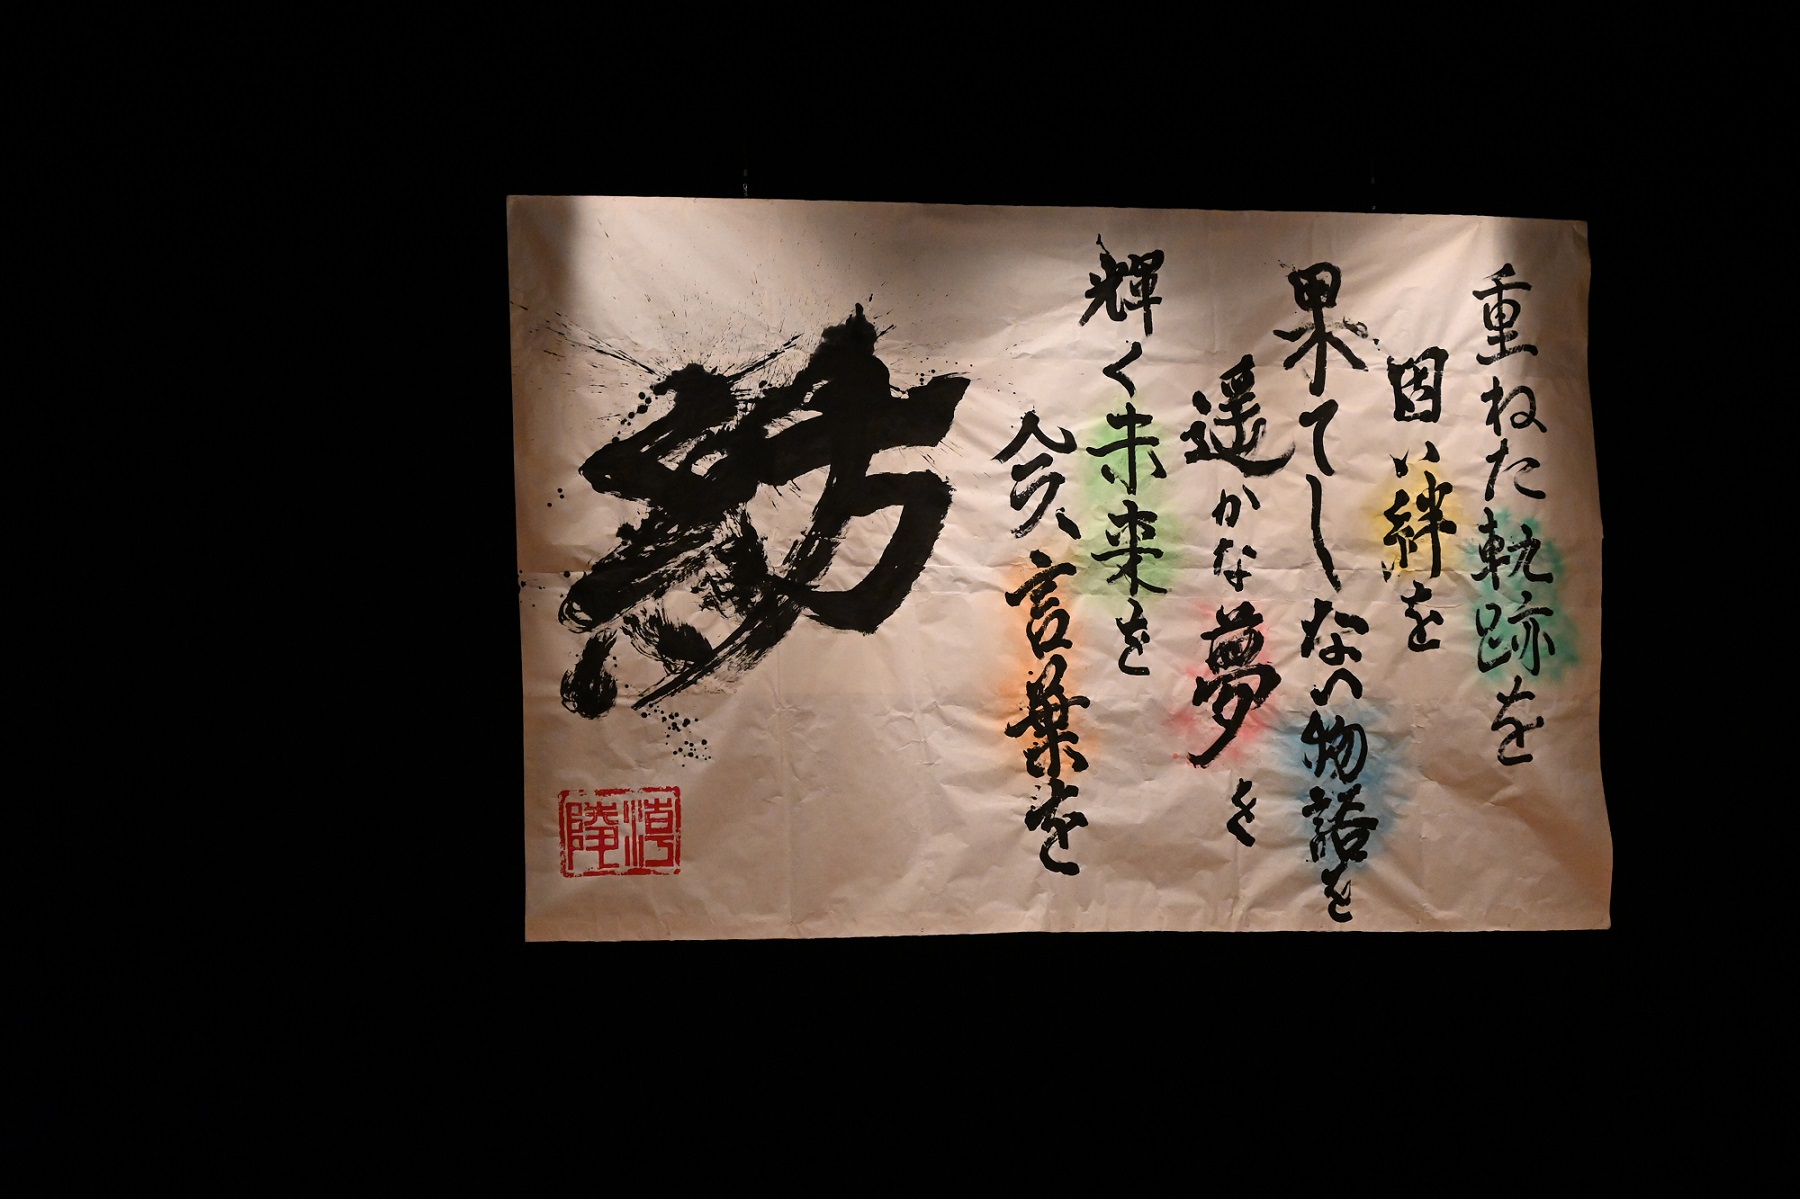 重ねた軌跡を
固い絆を
果てしない物語を
遥かな夢を
輝く未来を
今、言葉を
紡